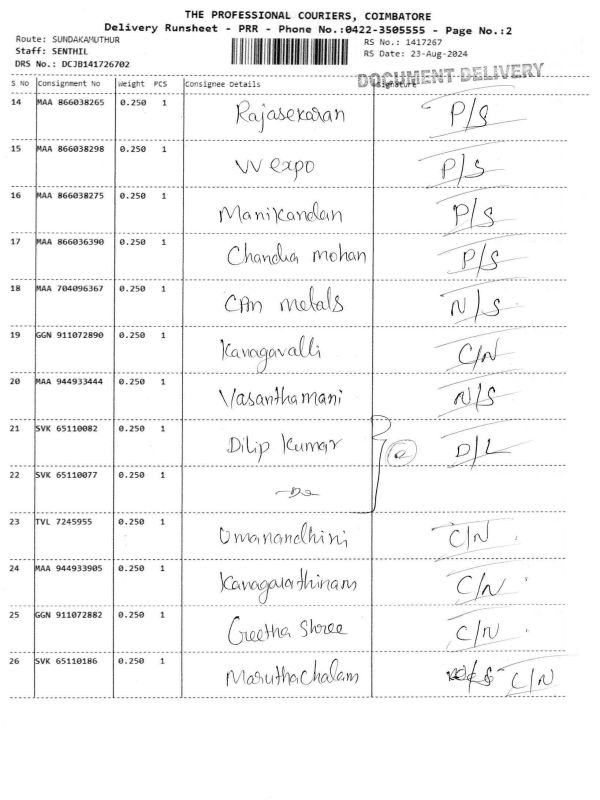 THE PROFESSIONAL COURIERS, COIMBATORE
Delivery Runsheet - PRR - Phone No.:0422-3505555 - Page No.:2
Route: SUNDAKAMUTHUR
Staff: SENTHIL
DRS No.: DCJB141726702
RS No.: 1417267
RS Date: 23-Aug-2024
DOCUMENT DELIVERY
S No Consignment No Weight PCS Consignee Details Signature
14 MAA 866038265 0.250 1 Rajasekaran P/S
15 MAA 866038298 0.250 1 VV expo P/S
16 MAA 866038275 0.250 1 Manikandan P/S
17 MAA 866036390 0.250 1 Chandra mohan P/S
18 MAA 704096367 0.250 1 CAn metals N/S
19 GGN 911072890 0.250 1 Kanagavalli C/N
20 MAA 944933444 0.250 1 Vasanthamani N/S
21 SVK 65110082 0.250 1 Dilip Kumar D/L
22 SVK 65110077 0.250 1 -Do-
23 TVL 7245955 0.250 1 Umanandhini C/N
24 MAA 944933905 0.250 1 Kanagarathinam C/N
25 GGN 911072882 0.250 1 Geetha Shree C/N
26 SVK 65110186 0.250 1 Maruthachalam C/N